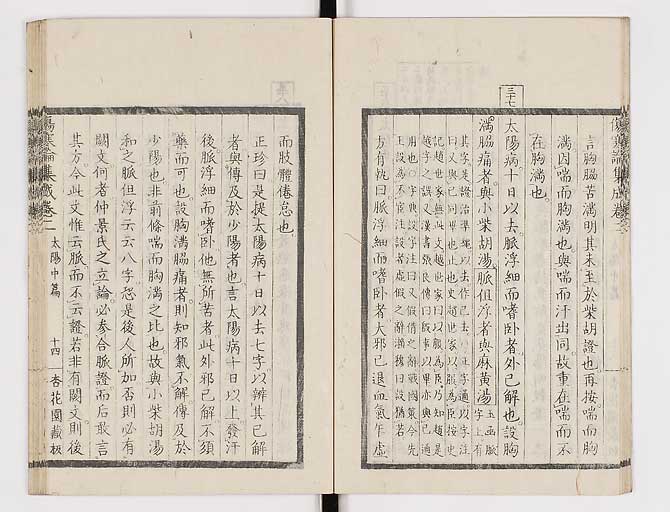 傷寒論集成卷二
言胸脇苦滿明其未至於柴胡證也再按喘而胸
滿因喘而胸滿也與喘而汗出同故重在喘而不
在胸滿也
三十七
太陽病十日以去脈浮細而嗜臥者外已解也設胸
滿脇痛者與小柴胡湯脈但浮者與麻黃湯
玉函脈
字上有
方有執曰脈浮細而嗜臥者大邪已退血氣乍虛
而肢體倦怠也
正珍曰是提太陽病十日以去七字以辨其已解
者與傳及於少陽者也言太陽病十日以上發汗
後脈浮細而嗜臥他無所苦者此外邪已解不須
藥而可也設胸滿脇痛者則知邪氣不解傳及於
少陽也非前條喘而胸滿之比也故與小柴胡湯
和之脈但浮云云八字恐是後人所加否則必有
闕文何者仲景氏之立論必參合脈證而後敢言
其方今此文惟云脈而不云證若非有闕文則後
傷寒論集成卷二 太陽中篇 十四 杏花園藏板